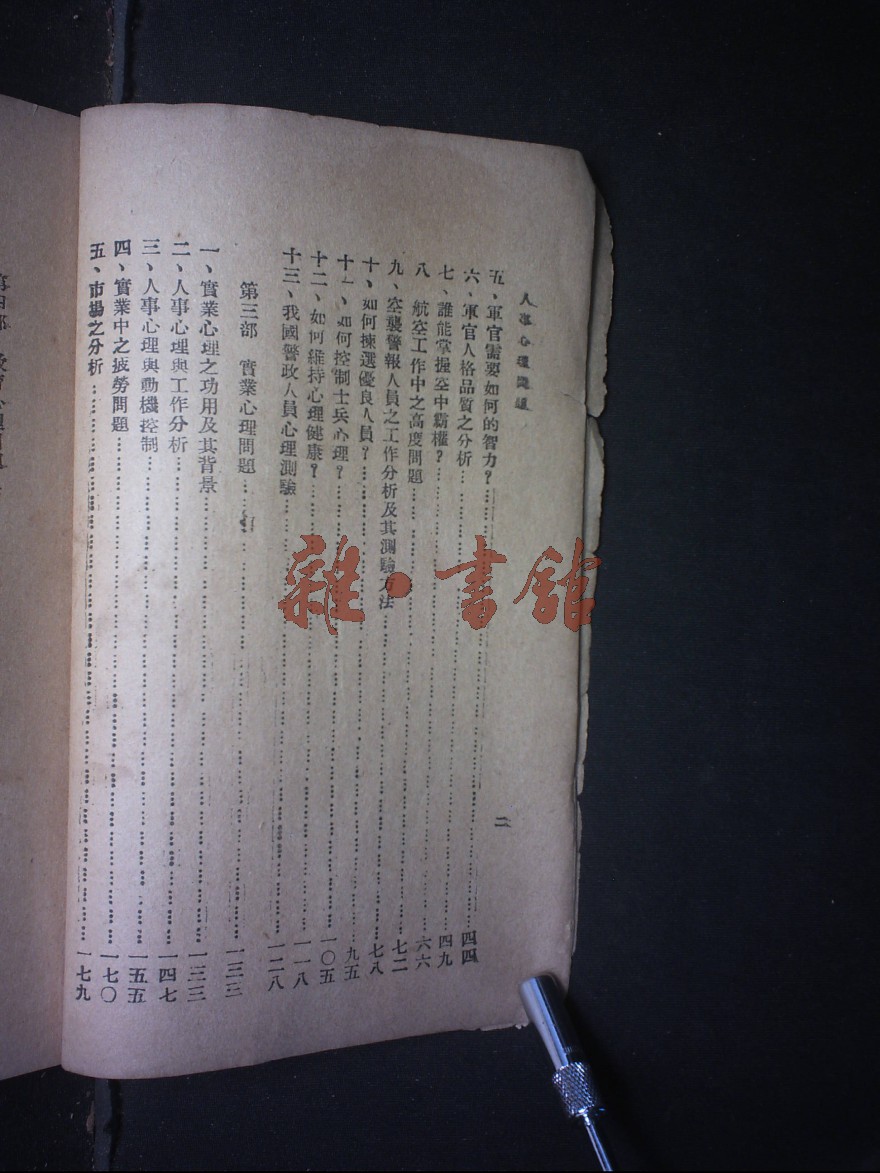 人事心理問題
二
五、軍官需要如何的智力?……四四
六、軍官人格品質之分析……四九
七、誰能掌握空中霸權?……六六
八、航空工作中之高度問題……七二
九、空襲警報人員之工作分析及其測驗方法……七八
十、如何揀選優良人員?……九五
十一、如何控制士兵心理?……一〇五
十二、如何維持心理健康?……一一八
十三、我國警政人員心理測驗……一二八
第三部 實業心理問題……一三三
一、實業心理之功用及其背景……一三三
二、人事心理與工作分析……一四七
三、人事心理與動機控制……一五五
四、實業中之疲勞問題……一七〇
五、市場之分析……一七九
雜·書館